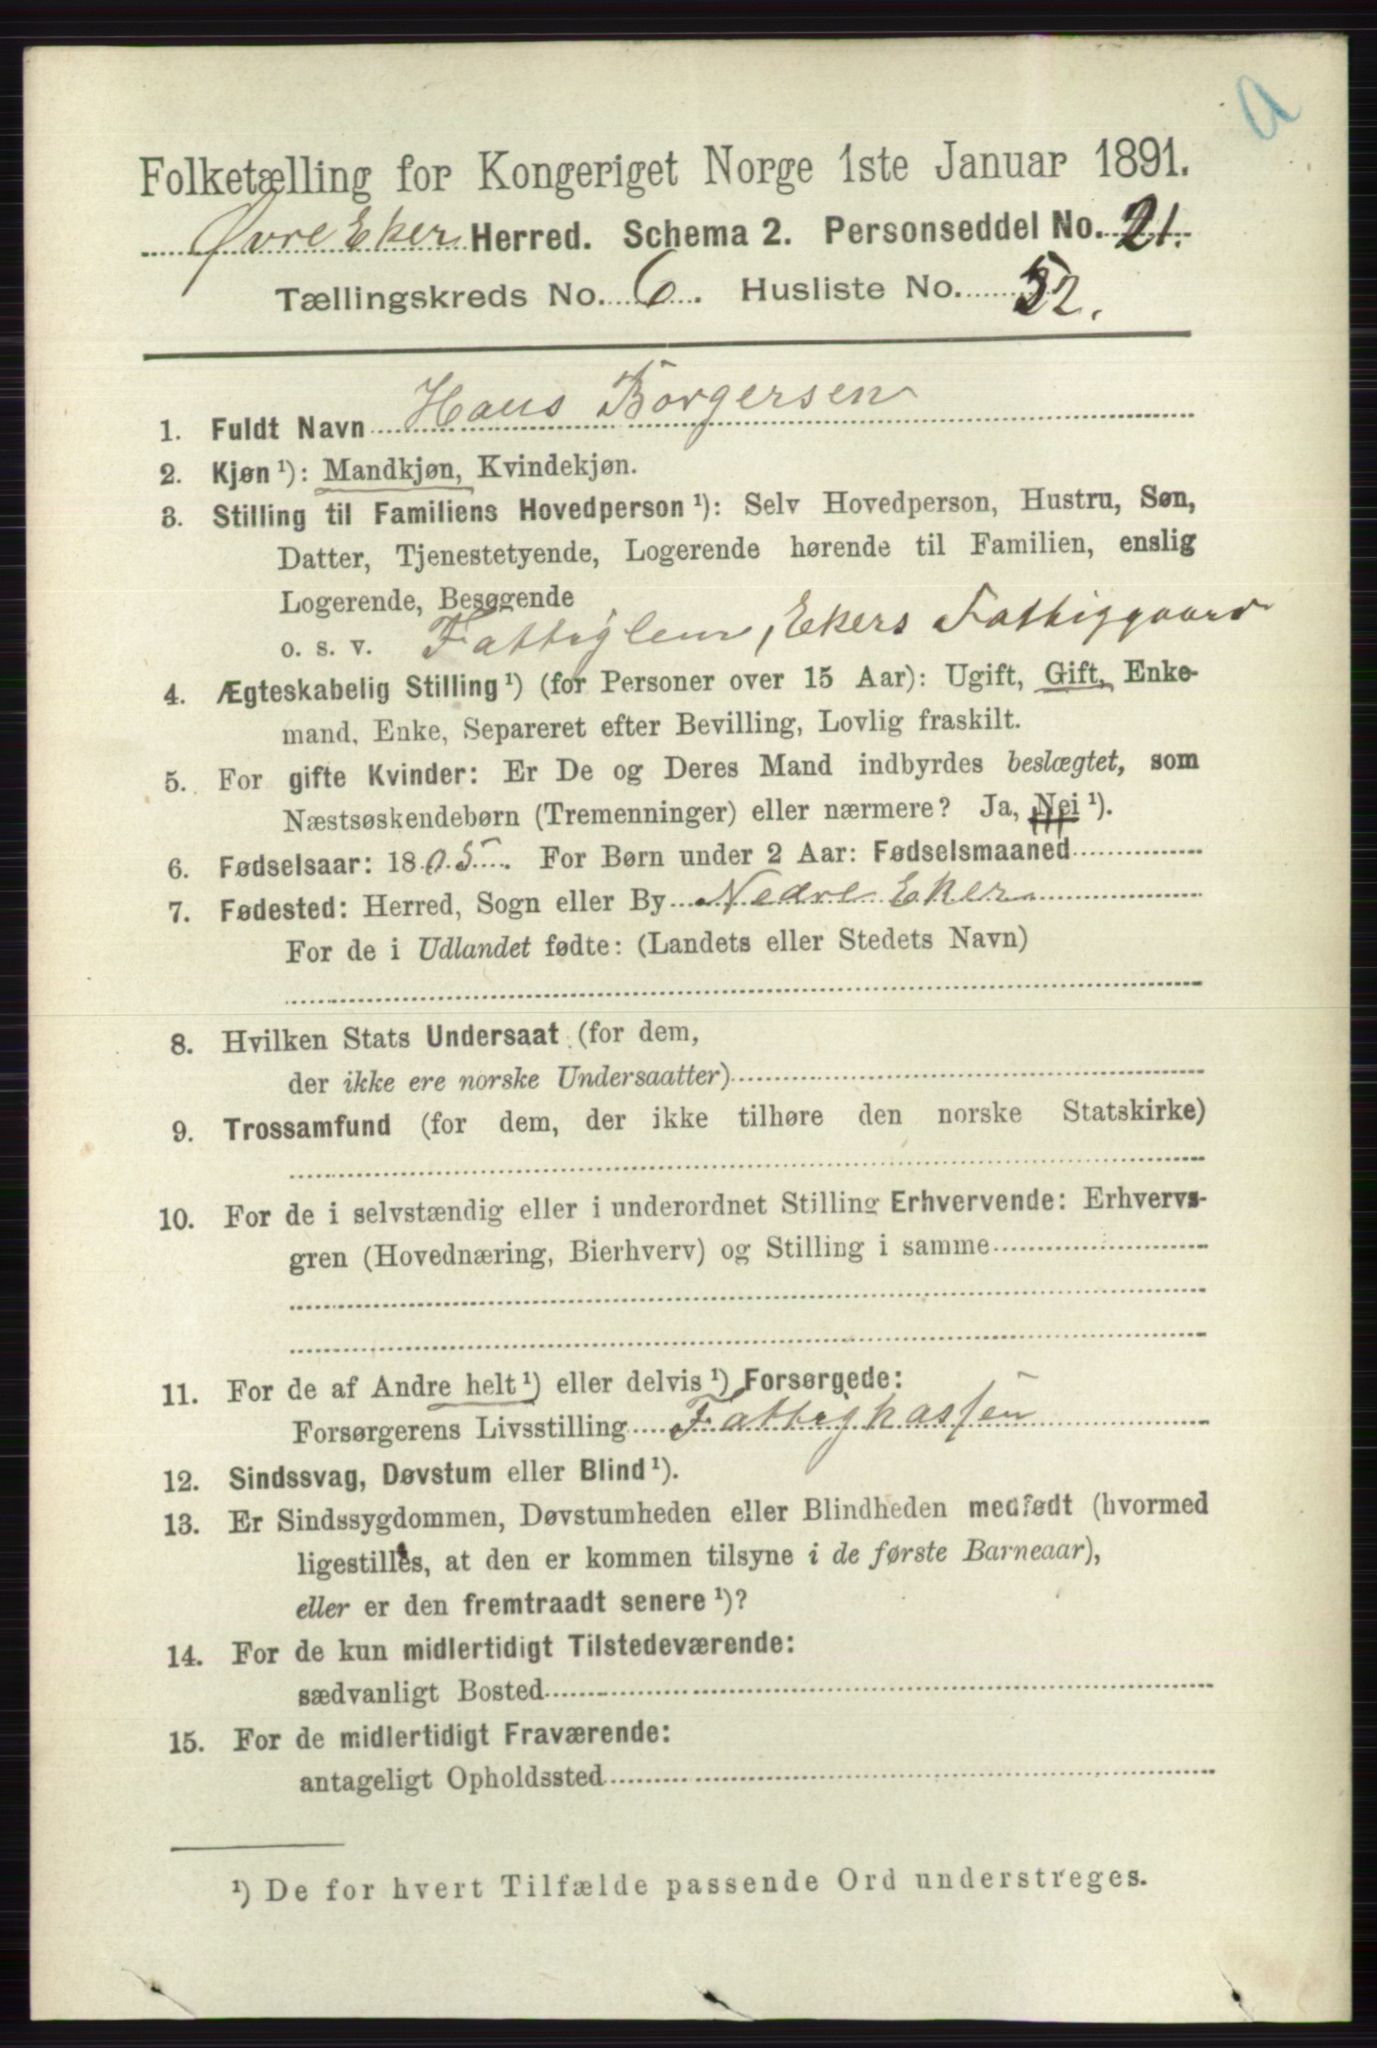 a
Folketælling for Kongeriget Norge 1ste Januar 1891.
Øvre Eker Herred. Schema 2. Personseddel No. 21.
Tællingskreds No. 6. Husliste No. 52.
1. Fuldt Navn Hans Borgersen
2. Kjøn ¹): Mandkjøn, Kvindekjøn.
3. Stilling til Familiens Hovedperson ¹): Selv Hovedperson, Hustru, Søn,
Datter, Tjenestetyende, Logerende hørende til Familien, enslig
Logerende, Besøgende
o. s. v. Fattiglem, Ekers Fattiggaard
4. Ægteskabelig Stilling ¹) (for Personer over 15 Aar): Ugift, Gift, Enke-
mand, Enke, Separeret efter Bevilling, Lovlig fraskilt.
5. For gifte Kvinder: Er De og Deres Mand indbyrdes beslægtet, som
Næstsøskendebørn (Tremenninger) eller nærmere? Ja, Nei ¹).
6. Fødselsaar: 1805. For Børn under 2 Aar: Fødselsmaaned
7. Fødested: Herred, Sogn eller By Nedre Eker
For de i Udlandet fødte: (Landets eller Stedets Navn)
8. Hvilken Stats Undersaat (for dem,
der ikke ere norske Undersaatter)
9. Trossamfund (for dem, der ikke tilhøre den norske Statskirke)
10. For de i selvstændig eller i underordnet Stilling Erhvervende: Erhvervs-
gren (Hovednæring, Bierhverv) og Stilling i samme
11. For de af Andre helt ¹) eller delvis ¹) Forsørgede:
Forsørgerens Livsstilling Fattigkassen
12. Sindssvag, Døvstum eller Blind ¹).
13. Er Sindssygdommen, Døvstumheden eller Blindheden medfødt (hvormed
ligestilles, at den er kommen tilsyne i de første Barneaar),
eller er den fremtraadt senere ¹)?
14. For de kun midlertidigt Tilstedeværende:
sædvanligt Bosted
15. For de midlertidigt Fraværende:
antageligt Opholdssted
¹) De for hvert Tilfælde passende Ord understreges.